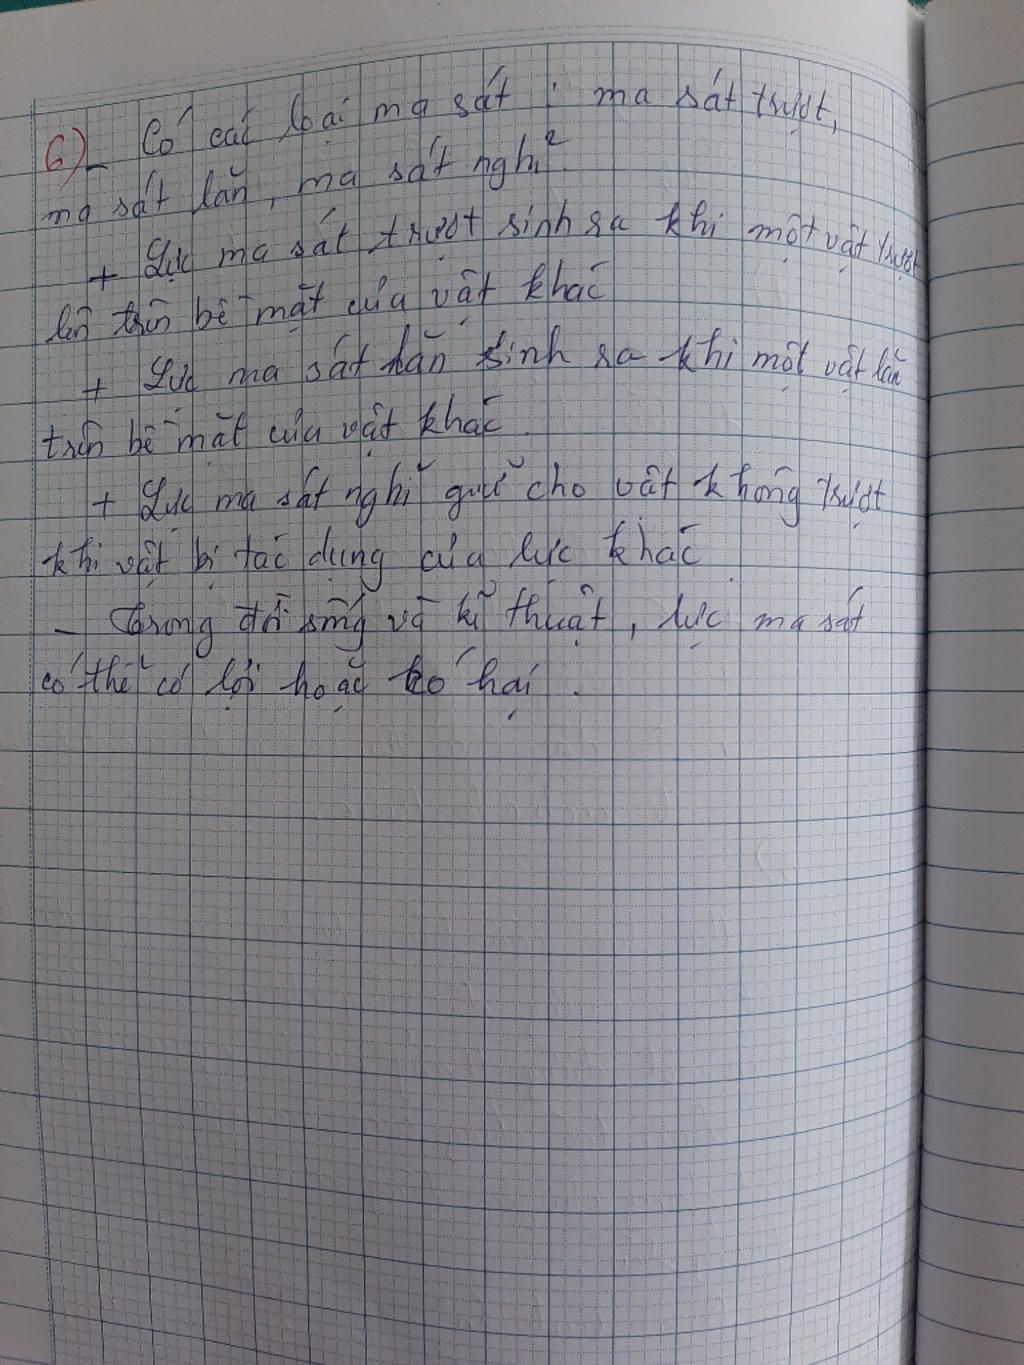 6) - Có các loại ma sát : ma sát trượt,
ma sát lăn, ma sát nghỉ.
+ Lực ma sát trượt sinh ra khi một vật trượt
lên trên bề mặt của vật khác
+ Lực ma sát lăn sinh ra khi một vật lăn
trên bề mặt của vật khác.
+ Lực ma sát nghĩ giữ cho vật không trượt
khi vật bị tác dụng của lực khác.
- Trong đời sống và kĩ thuật, lực ma sát
có thể có lợi hoặc có hại.